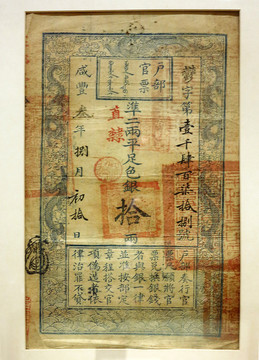 户部
官票
字第壹千肆百柒拾捌號
准二兩平足色銀拾兩
直隸
咸豐叁年捌月初拾日
户部奏行官
票凡願將官
票兌換銀錢
者與銀一律
並准按部定
章程搭交官
項偽造者依
律治罪不貸